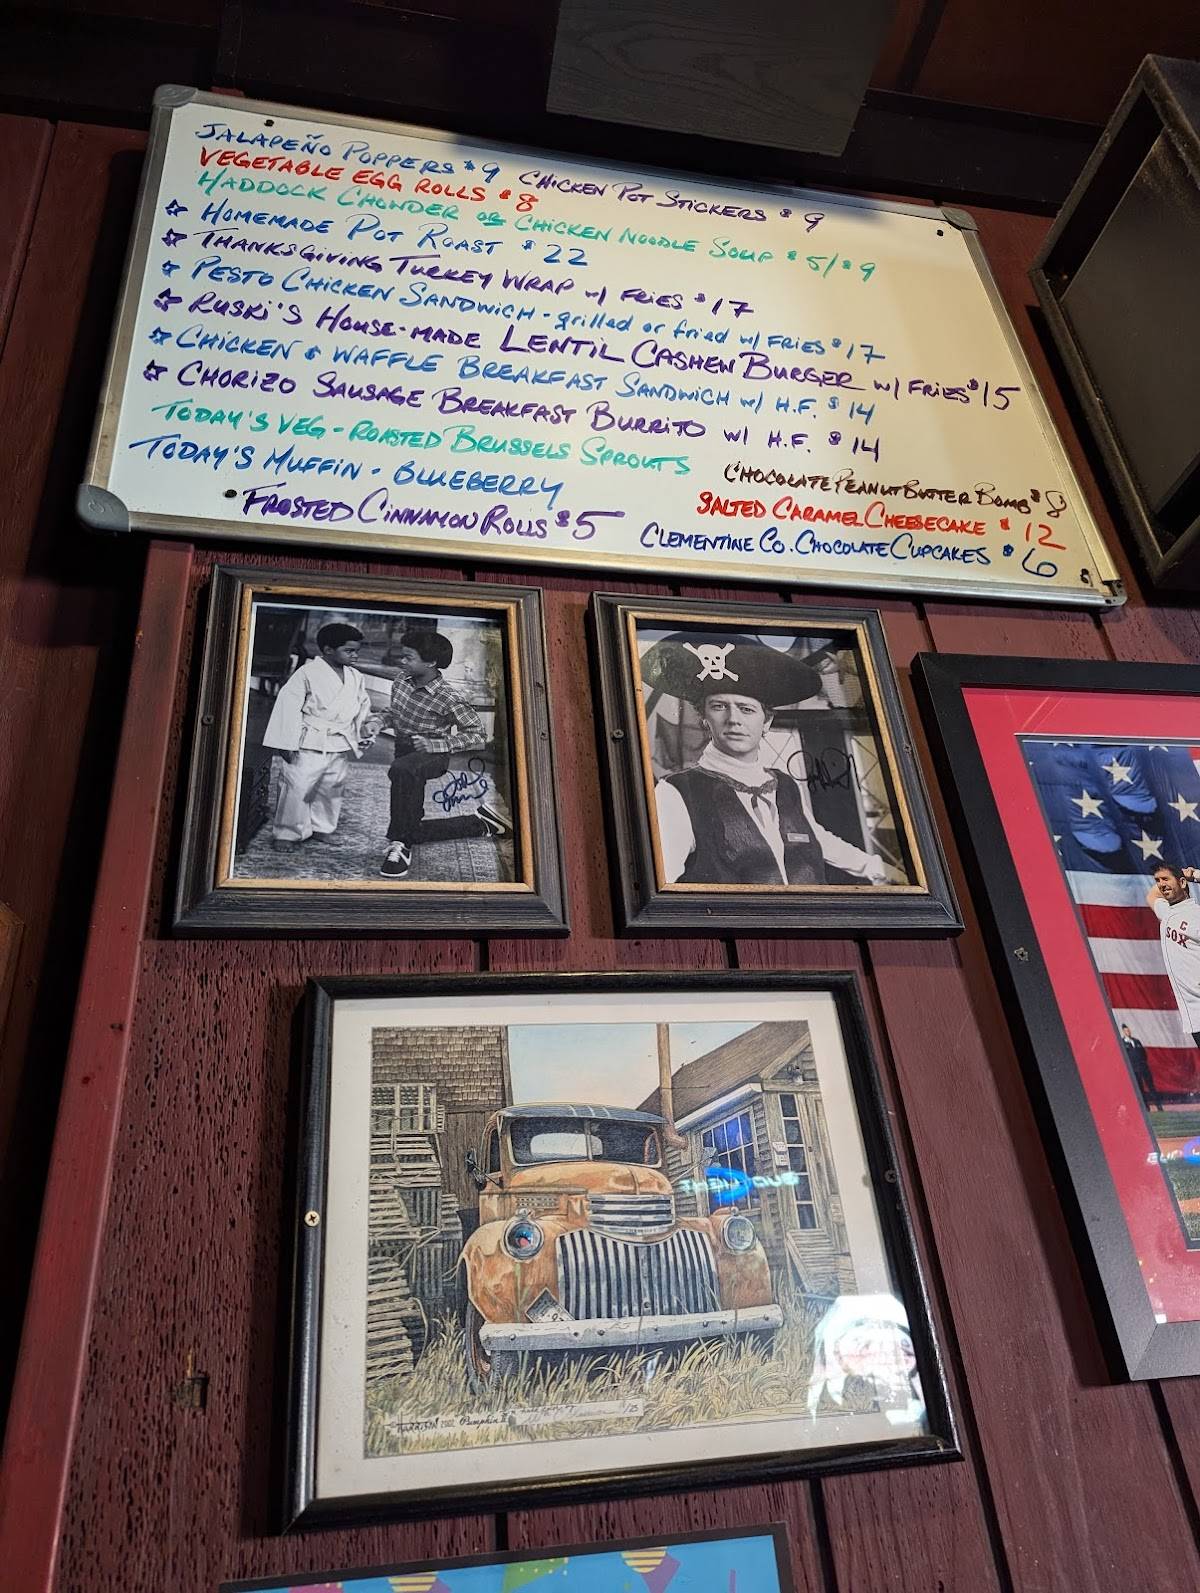 JALAPEÑO POPPERS $9 CHICKEN POT STICKERS $9
VEGETABLE EGG ROLLS $8
HADDOCK CHOWDER OR CHICKEN NOODLE SOUP $5/$9
☆ HOMEMADE POT ROAST $22
☆ THANKSGIVING TURKEY WRAP w/ FRIES $17
☆ PESTO CHICKEN SANDWICH - grilled or fried w/ FRIES $17
☆ RUSKI'S HOUSE-MADE LENTIL CASHEW BURGER w/ FRIES $15
☆ CHICKEN & WAFFLE BREAKFAST SANDWICH w/ H.F. $14
☆ CHORIZO SAUSAGE BREAKFAST BURRITO w/ H.F. $14
TODAY'S VEG - ROASTED BRUSSELS SPROUTS
TODAY'S MUFFIN - BLUEBERRY
FROSTED CINNAMON ROLLS $5
CHOCOLATE PEANUT BUTTER BOMB $8
SALTED CARAMEL CHEESECAKE $12
CLEMENTINE CO. CHOCOLATE CUPCAKES $6
C
SOX
HARRISON 2002 Pumpkin II